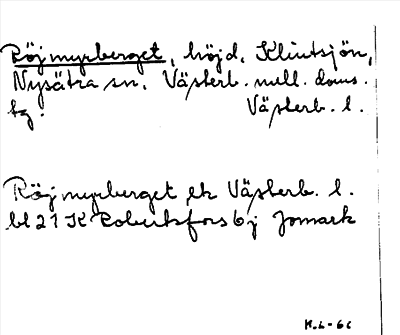 Röjmyrberget, höjd, Klintsjön,
Nysätra sn. Västerb. mell. doms.
tg. Västerb. l.
Röjmyrberget ek Västerb. l.
bl 21 K Robertsfors 6j Jomark